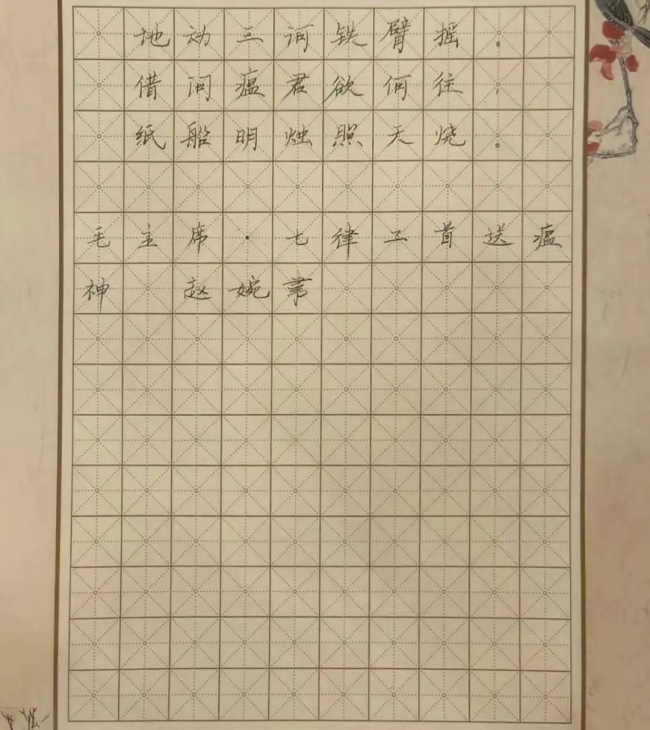 地动三河铁臂摇。
借问瘟君欲何往,
纸船明烛照天烧。
毛主席·七律二首送瘟
神 赵婉